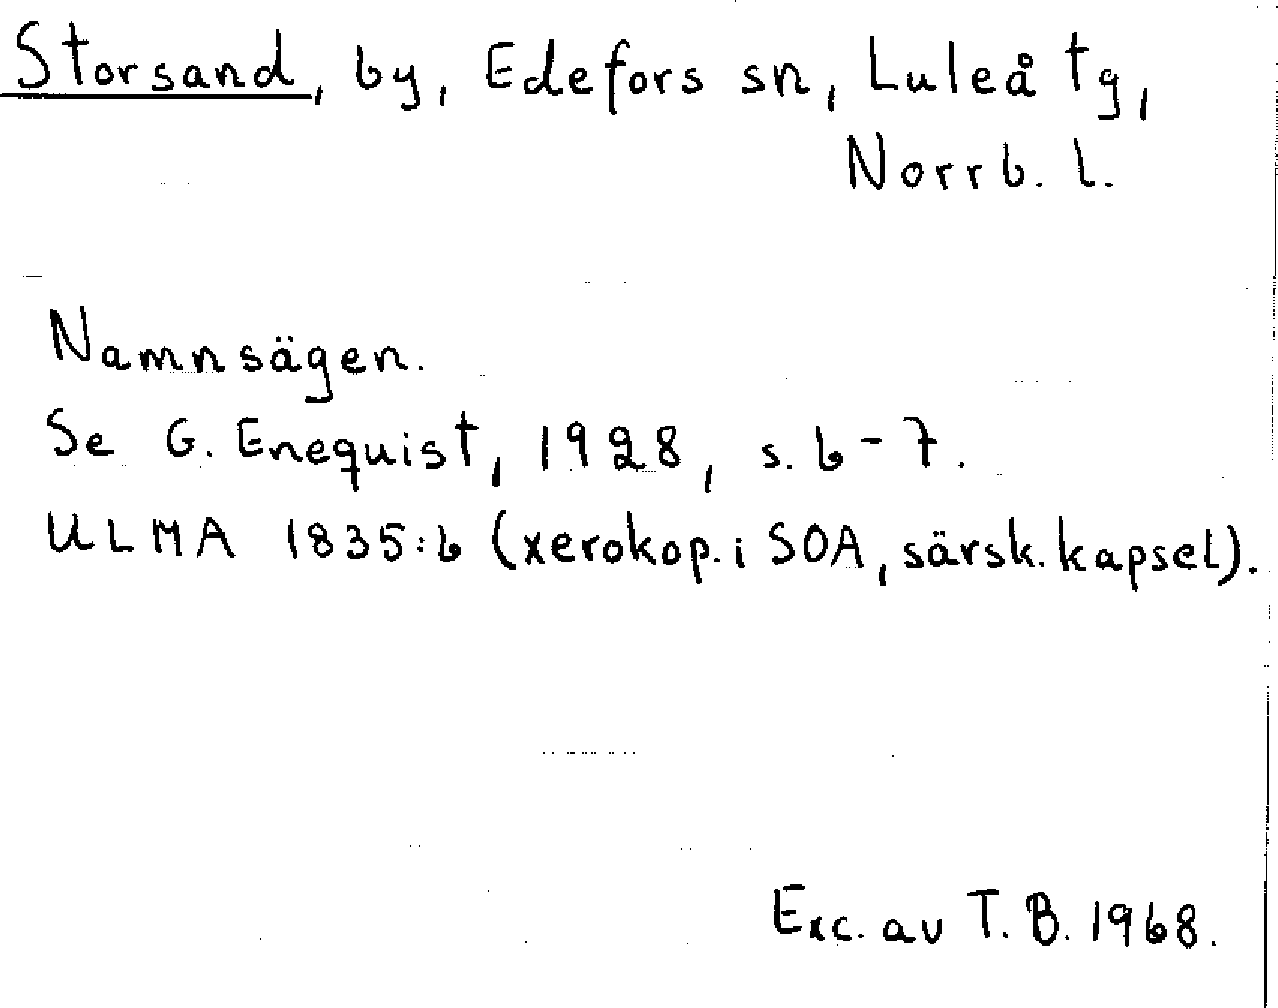 Storsand, by, Edefors sn, Luleå tg,
Norrb. l.
Namnsägen.
Se G. Enequist, 1928, s. 6-7.
ULMA 1835:6 (xerokop. i SOA, särsk. kapsel).
Exc. av T. B. 1968.